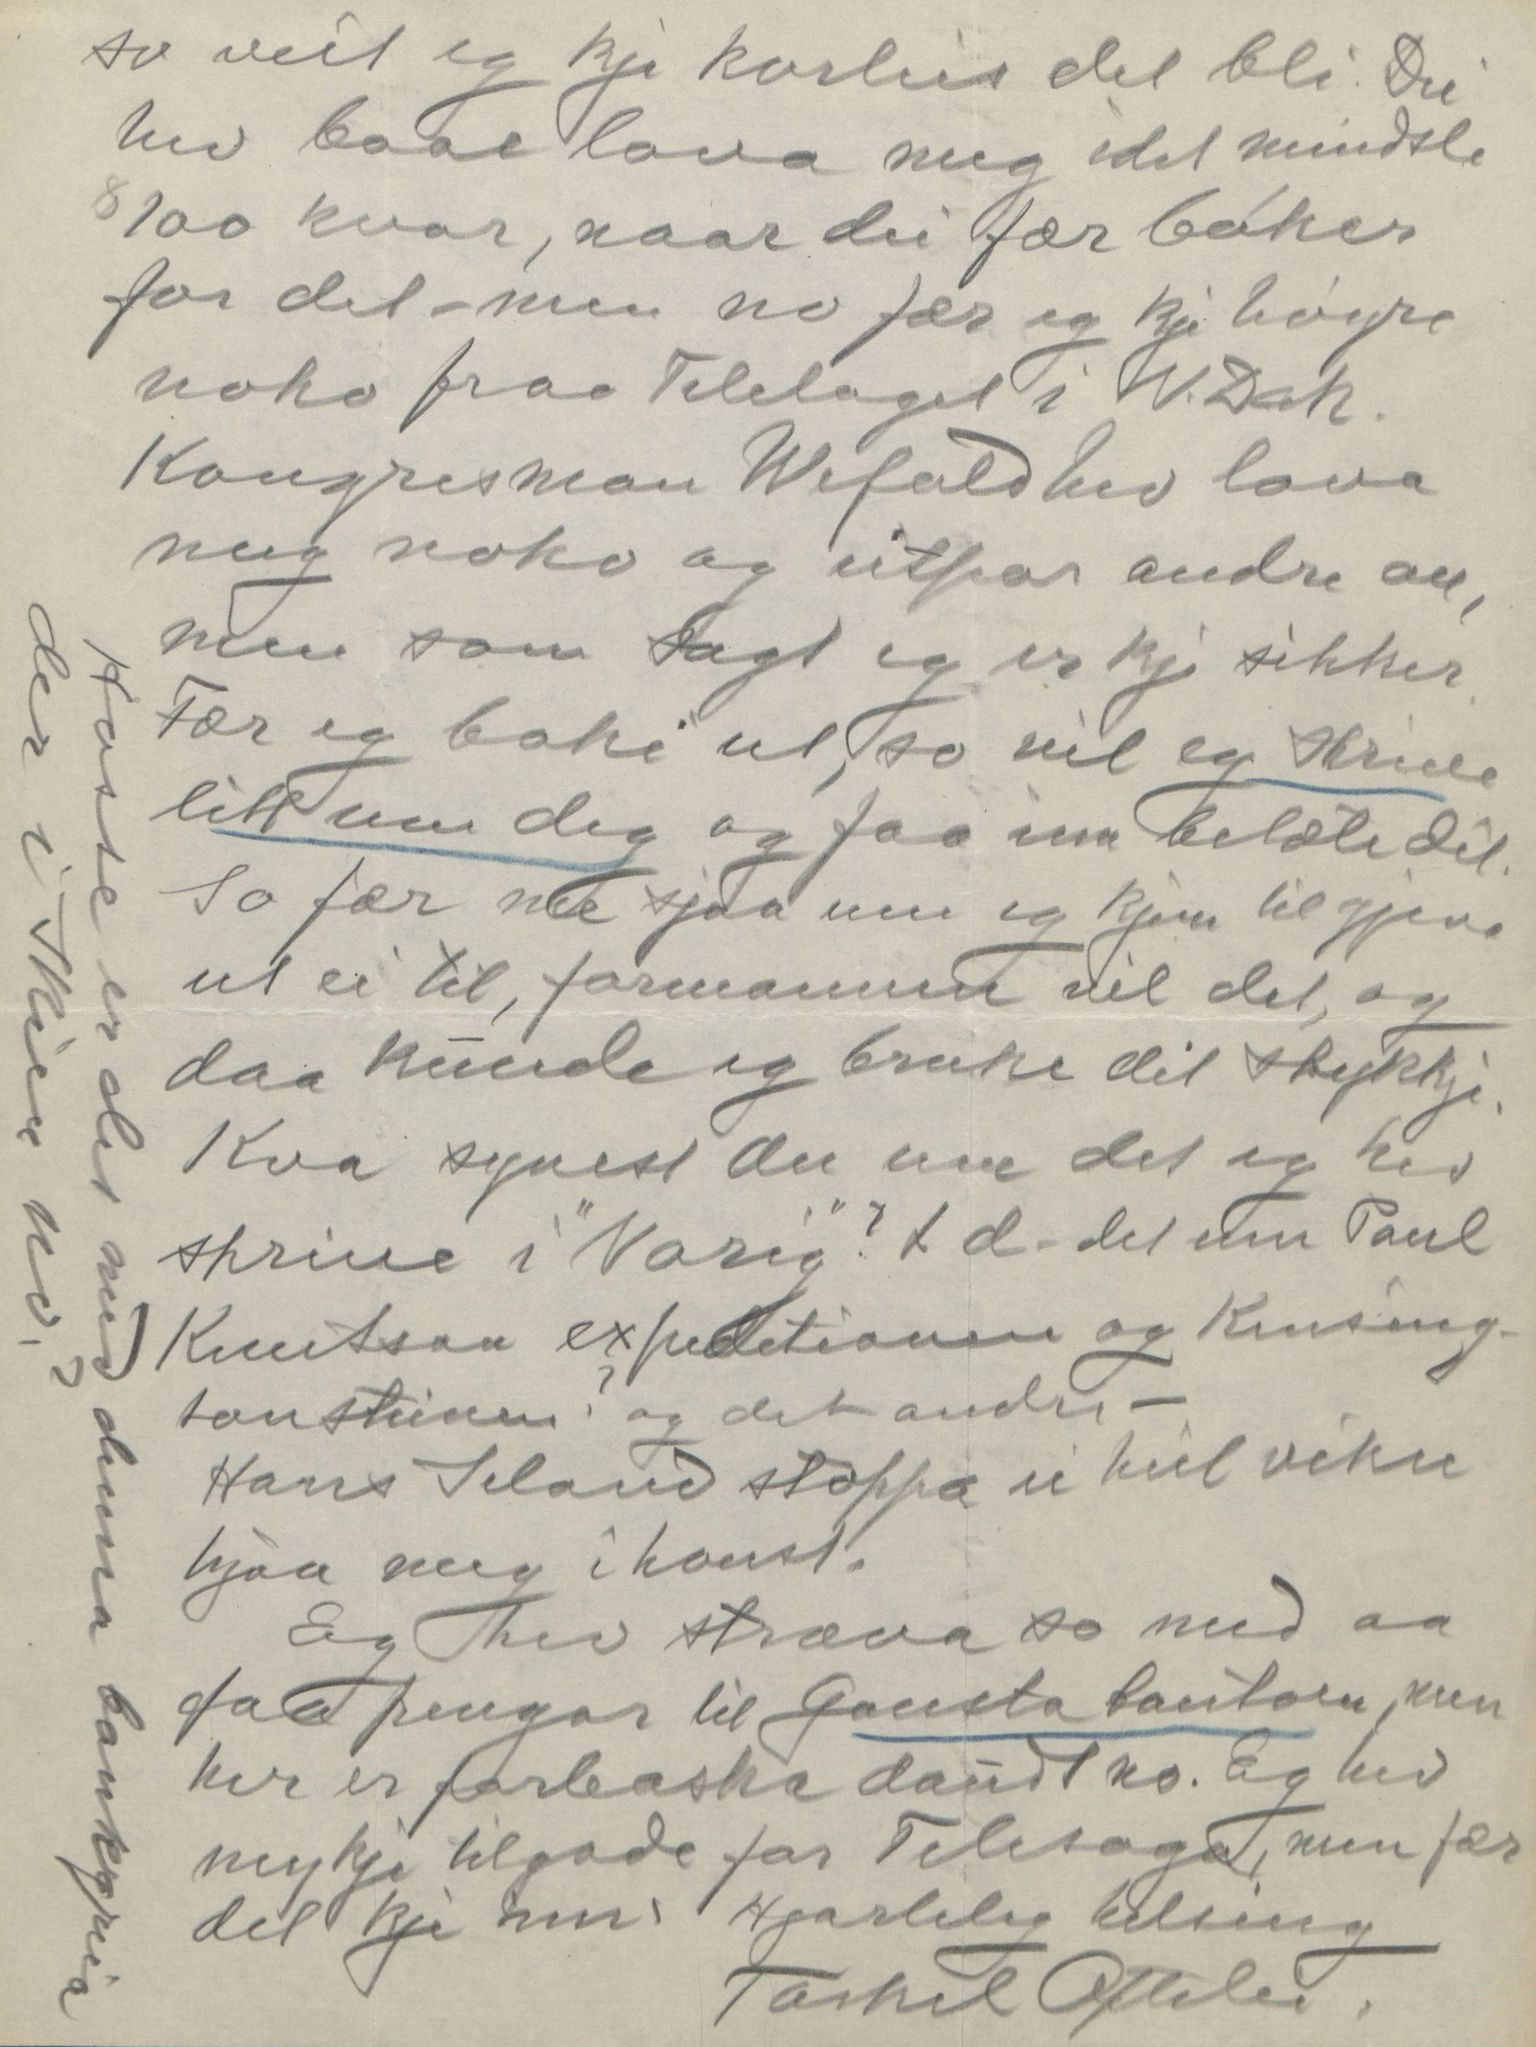 so veit eg kje korleis det bli. Dei
hev baae lova meg idet mindste
$100 kvar, naar dei fær bøker
for det – men no fær eg kje høyre
noko fraa Telelaget i N. Dak.
Kongresman Wefald hev lova
meg noko og eitpar andre au,
men som sagt eg er kje sikker.
Fær eg boki ut, so vil eg skrive
litt um deg og faa inn belæte dit.
So fær me sjaa um eg kjem til gjeva
ut ei til, formannen vil det, og
daa kunde eg bruke dit stykkje.
Kva synest du um det eg hev
skrive i "Varig"? t d. det um Paul
Knutson expeditionen og Kensing-
tonsteinen? og det andre –
Hans Seland stoppa ei heil viku
hjaa meg i haust.
Eg hev stræva so med aa
faa pengar til Gaustatoutaarn, men
her er forbaska daudt no. Eg hev
mykje tilgode for Telesoga, men fær
det kje inn. Hjarteleg helsing
Torkel Oftelie.
Korste er det med denna bankkria
der i Skien no?